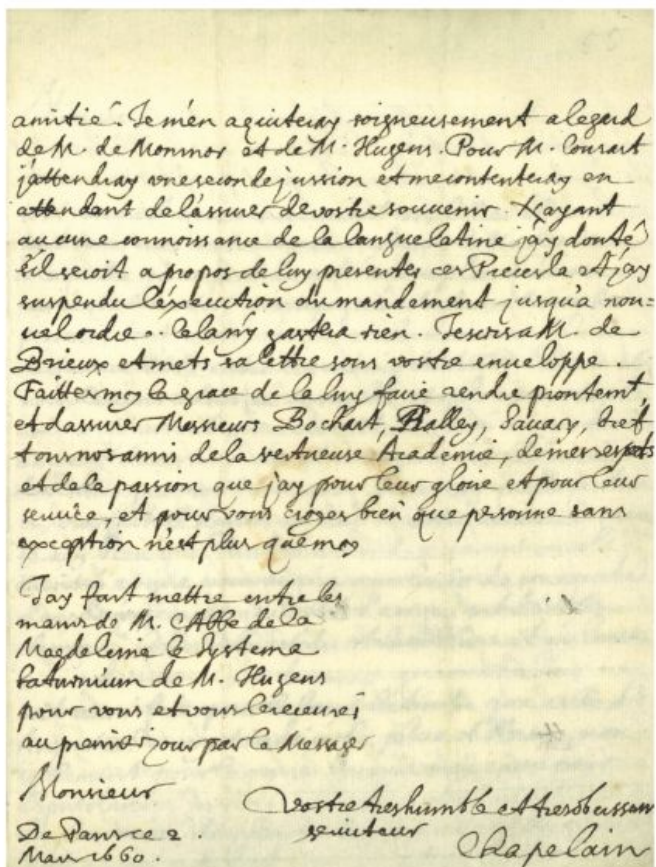 amitié. Je m'en aquiteray soigneusement a legard
de M. de Monmor et de M. Hugens. Pour M. Conrart
j'attendray vne seconde jussion et me contenteray en
attendant de l'assurer de vostre souuenir. N'ayant
aucune connoissance de la langue latine j'ay douté
s'il seroit a propos de luy presenter ces Pieces la et j'ay
suspendu l'éxecution du mandement jusqu'a nou=
uel ordre. Cela n'y gastera rien. J'escris a M. de
Brieux et mets sa lettre sous vostre enueloppe.
Faittes moy la grace de la luy faire rendre prontemt,
et dassurer Messieurs Bochart, Halley, Sauary, bref
tous nos amis de la vertueuse Academie, de mes respets
et de la passion que j'ay pour leur gloire et pour leur
seruice, et pour vous croyes bien que personne sans
exception n'est plus que moy
J'ay fait mettre entre les
mains de M. l'Abbé de la
Magdeleine le Systema
Saturnium de M. Hugens
pour vous et vous le receures
au premier jour par le Messager
Monsieur
Vostre treshumble et tresobeissant
seruiteur
De Paris ce 2.
Mars 1660.
Chapelain